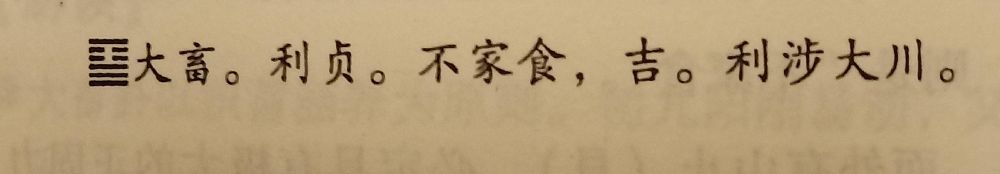 ䷙大畜。利贞。不家食，吉。利涉大川。